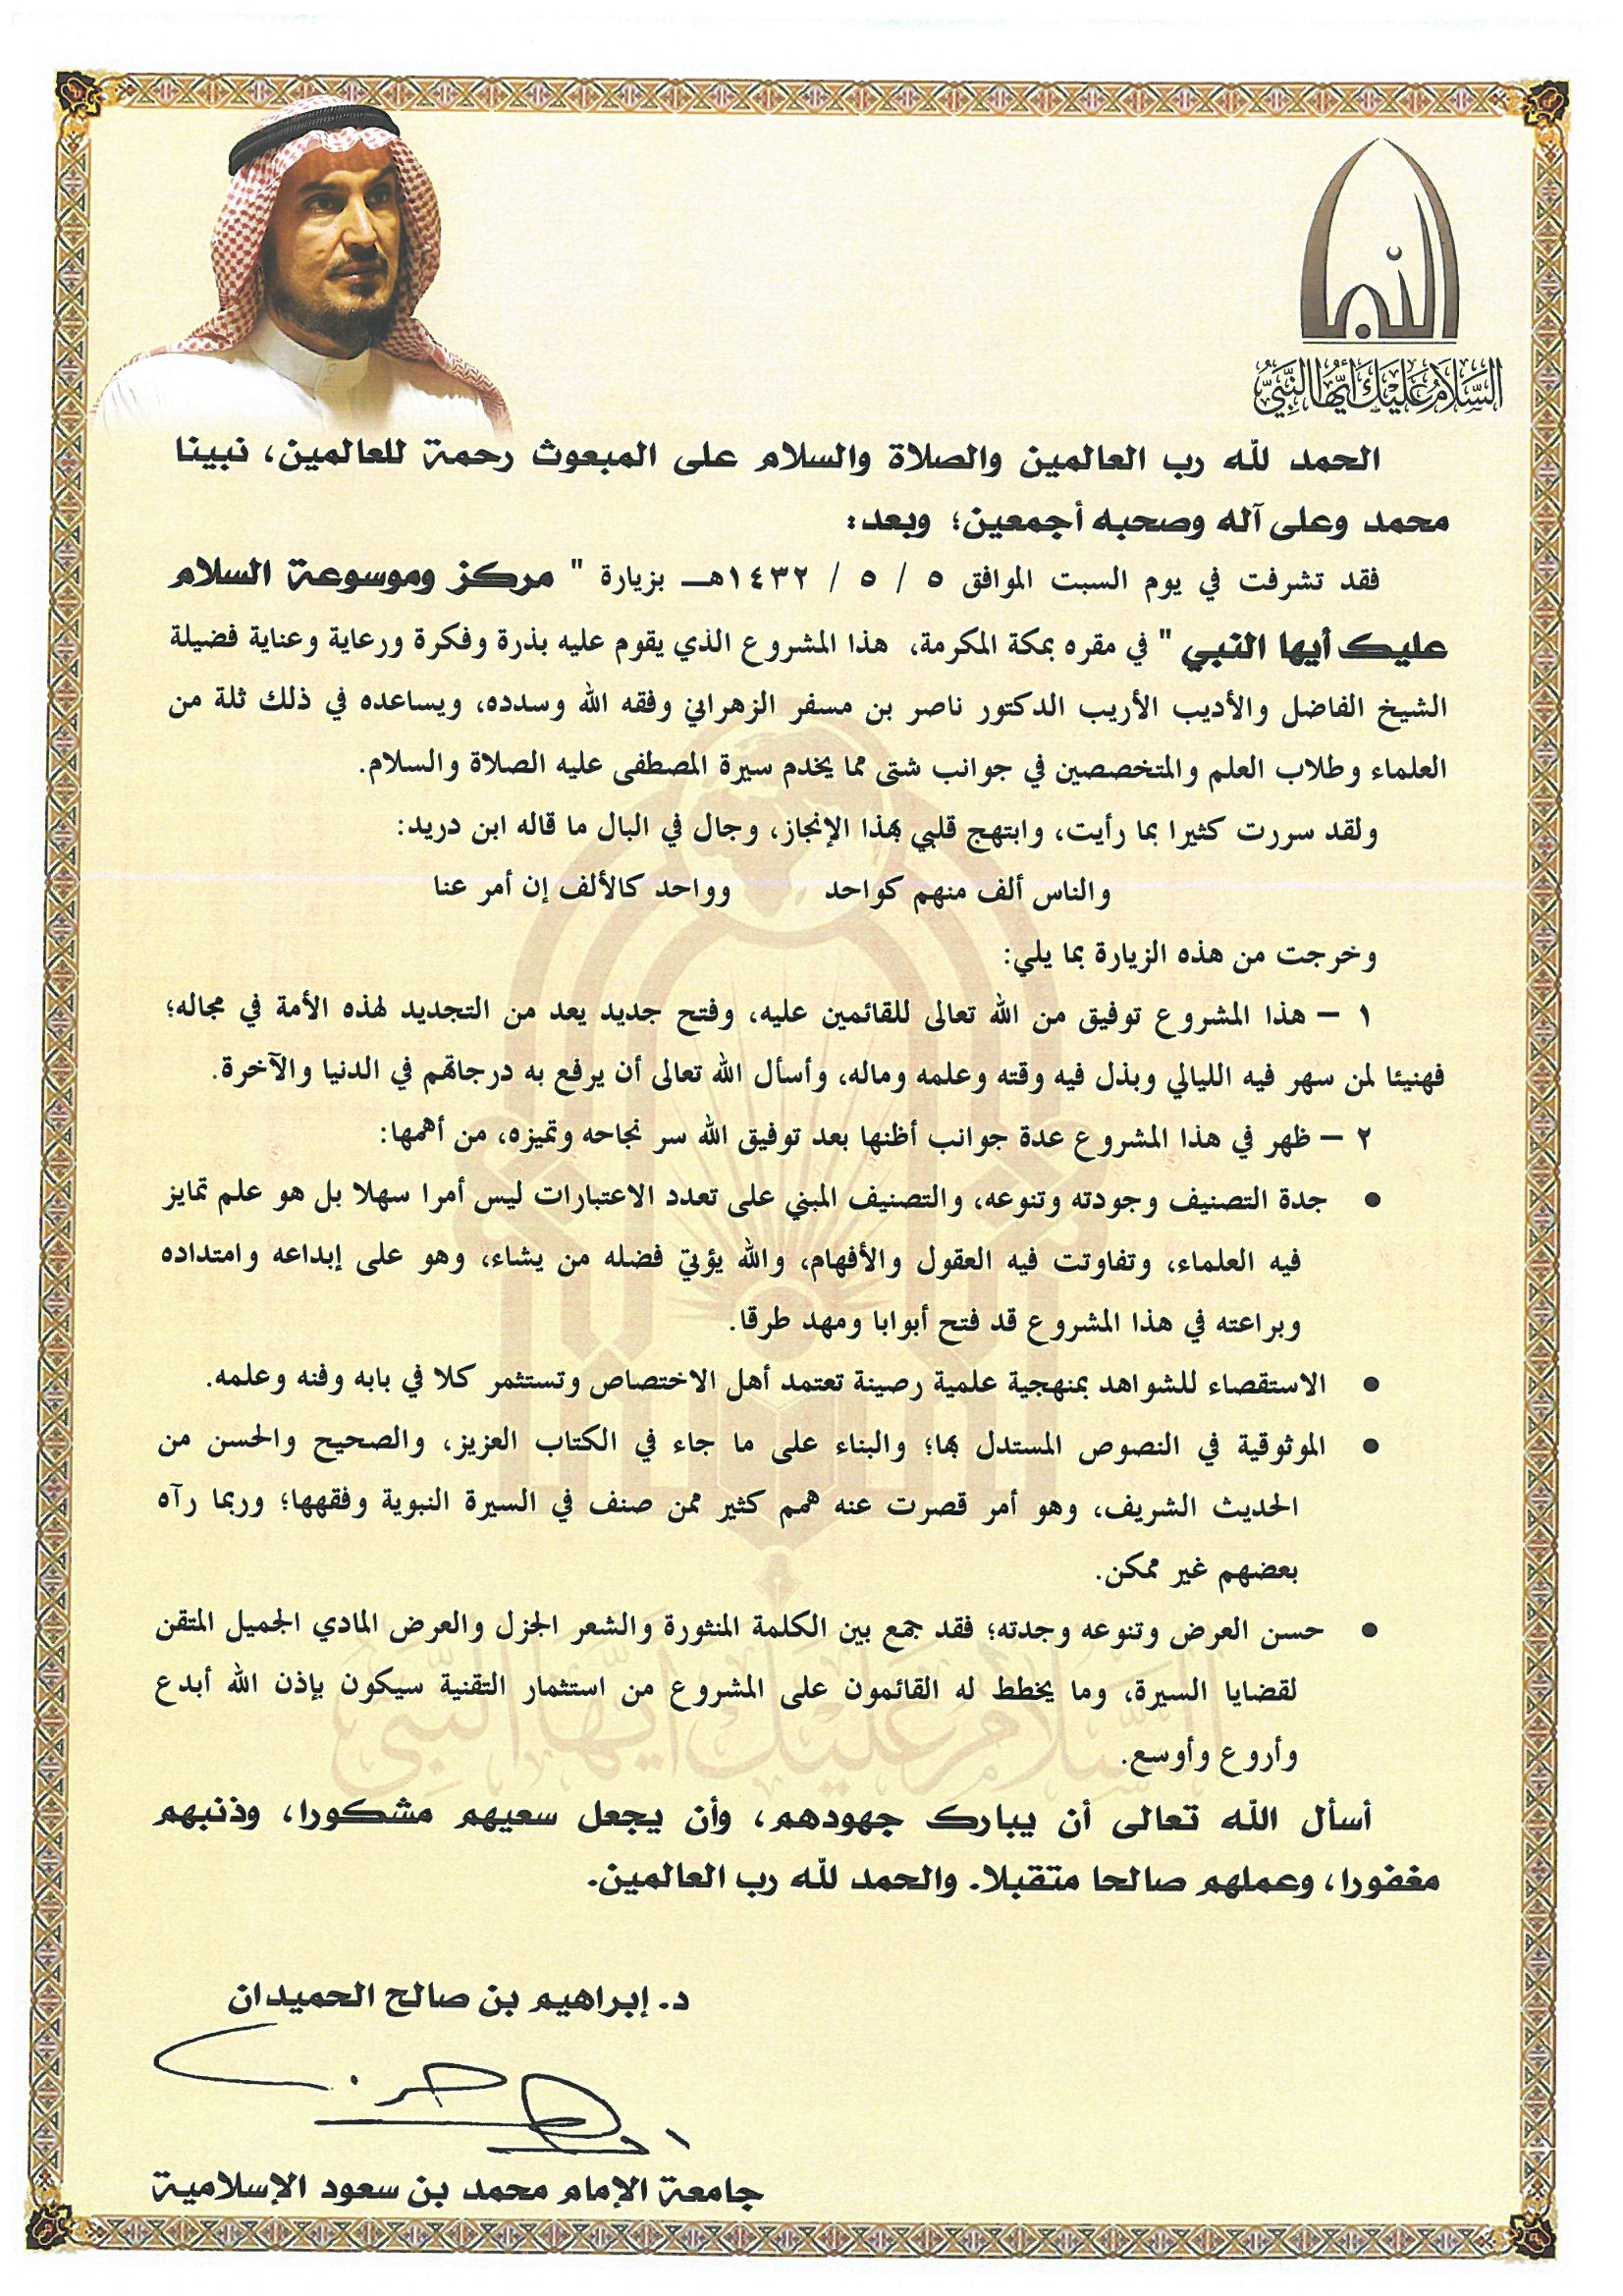 النبي
السلام عليك أيها النبي
الحمد لله رب العالمين والصلاة والسلام على المبعوث رحمة للعالمين، نبينا
محمد وعلى آله وصحبه أجمعين؛ وبعد:
فقد تشرفت في يوم السبت الموافق ٥ / ٥ / ١٤٣٢هـ بزيارة " مركز وموسوعة السلام
عليك أيها النبي " في مقره بمكة المكرمة، هذا المشروع الذي يقوم عليه بذرة وفكرة ورعاية وعناية فضيلة
الشيخ الفاضل والأديب الأريب الدكتور ناصر بن مسفر الزهراني وفقه الله وسدده، ويساعده في ذلك ثلة من
العلماء وطلاب العلم والمتخصصين في جوانب شتى مما يخدم سيرة المصطفى عليه الصلاة والسلام.
ولقد سررت كثيرا بما رأيت، وابتهج قلبي بهذا الإنجاز، وجال في البال ما قاله ابن دريد:
والناس ألف منهم كواحد وواحد كالألف إن أمر عنا
وخرجت من هذه الزيارة بما يلي:
١ – هذا المشروع توفيق من الله تعالى للقائمين عليه، وفتح جديد يعد من التجديد لهذه الأمة في مجاله؛
فهنيئا لمن سهر فيه الليالي وبذل فيه وقته وعلمه وماله، وأسأل الله تعالى أن يرفع به درجاتهم في الدنيا والآخرة.
٢ – ظهر في هذا المشروع عدة جوانب أظنها بعد توفيق الله سر نجاحه وتميزه، من أهمها:
• جدة التصنيف وجودته وتنوعه، والتصنيف المبني على تعدد الاعتبارات ليس أمرا سهلا بل هو علم تمايز
فيه العلماء، وتفاوتت فيه العقول والأفهام، والله يؤتي فضله من يشاء، وهو على إبداعه وامتداده
وبراعته في هذا المشروع قد فتح أبوابا ومهد طرقا.
• الاستقصاء للشواهد بمنهجية علمية رصينة تعتمد أهل الاختصاص وتستثمر كلا في بابه وفنه وعلمه.
• الموثوقية في النصوص المستدل بها؛ والبناء على ما جاء في الكتاب العزيز، والصحيح والحسن من
الحديث الشريف، وهو أمر قصرت عنه همم كثير ممن صنف في السيرة النبوية وفقهها؛ وربما رآه
بعضهم غير ممكن.
• حسن العرض وتنوعه وجدته؛ فقد جمع بين الكلمة المنثورة والشعر الجزل والعرض المادي الجميل المتقن
لقضايا السيرة، وما يخطط له القائمون على المشروع من استثمار التقنية سيكون بإذن الله أبدع
وأروع وأوسع.
أسأل الله تعالى أن يبارك جهودهم، وأن يجعل سعيهم مشكورا، وذنبهم
مغفورا، وعملهم صالحا متقبلا. والحمد لله رب العالمين.
د. إبراهيم بن صالح الحميدان
جامعة الإمام محمد بن سعود الإسلامية